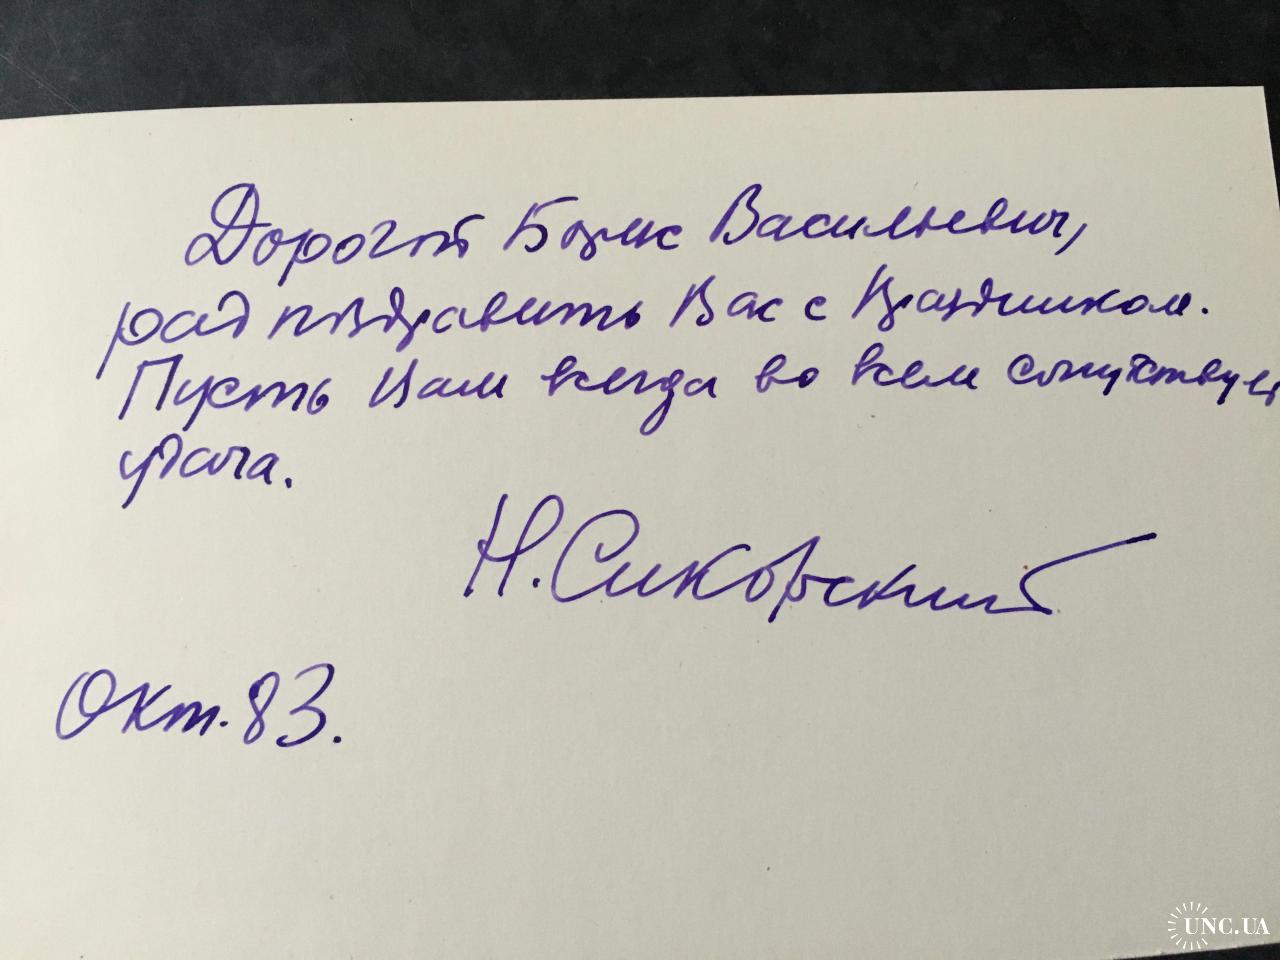 Дорогой Борис Васильевич,
рад поздравить Вас с Праздником.
Пусть Вам всегда во всем сопутствует
удача.
Н. Сиковский
Окт. 83.
UNC.UA